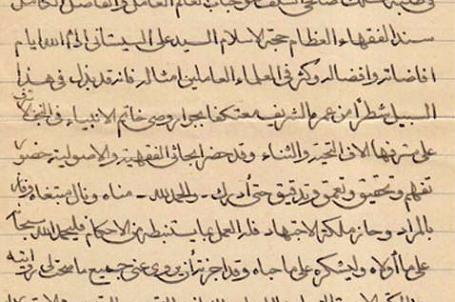 طلبه سلك صالحي السلف جناب العالم العامل والفاضل الكامل
سند الفقهاء العظام حجة الاسلام السيد علي السيستاني ادام الله ايام
افاضاته وافضاله وكثر في العلماء العاملين امثاله فانه قد بذل في هذا
السبيل شطراً من عمره الشريف معتكفاً بجوار وصي خاتم الانبياء في النجف
على مشرفها الاف التحية والثناء وقد حضر ابحاثي الفقهية والاصولية حضور
تفهم وتحقيق وتعمق وتدقيق حتى أدرك - والحمد لله - مناه ونال مبتغاه وفاز
بالمراد وحاز ملكة الاجتهاد فله العمل بما يستنبطه من الاحكام فليحمد الله سبحانه
على ما أولاه وليشكره على ما حباه وقد اجزته أن يروي عني جميع ما صحت لي روايته